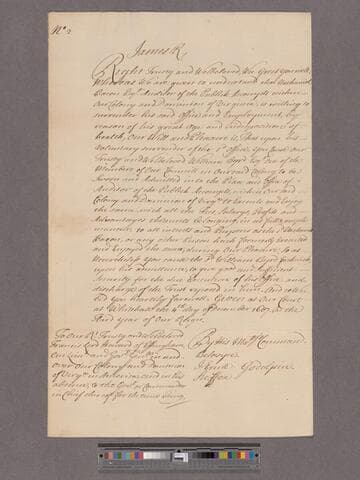 No 2
James R.
Right Trusty and Welbeloved, We Greet you well,
Whereas We are given to understand that Nathaniel
Bacon Esqr. Auditor of the Publick Accompts within
Our Colony and Dominion of Virginia, is willing to
surrender his said Office and Employment, by
reason of his great Age and Indisposition of
health, Our Will and Pleasure is, That upon his
voluntary surrender of the sd. Office, You Cause Our
Trusty and Welbeloved William Byrd Esqr. One of the
Members of Our Councill in Our said Colony to be
Sworn and Admitted into the Place and Office of
Auditor of the Publick Accompts, within Our said
Colony and Dominion of Virga. to Execute and Enjoy
the same, with all the Fees, Salarys, Profits and
Advantages thereunto belonging in as full & ample
manner to all intents and Purposes as the sd. Nathaniel
Bacon, or any other Person hath formerly Executed
and Enjoyed the same, during Our Pleasure, So as
Neverthelesse You cause the sd. William Byrd
upon his admittance, to give good and sufficient
Security for the due Execution of the Office and
discharge of the Trust reposed in him, And soe We
bid You heartily farewell, Given at Our Court
at Whitehall the 4th day of December 1687, in the
third year of Our Reign.
To Our Rt. Trusty and Welbeloved
Francis Lord Howard of Effingham
Our Lieut. and Govr. Genll. in and
over Our Colony and Dominion
of Virga. in America, and in his
absence, to the Commander
in Chief there for the time being
By His Majts. Command
Belasyse
Godolphin